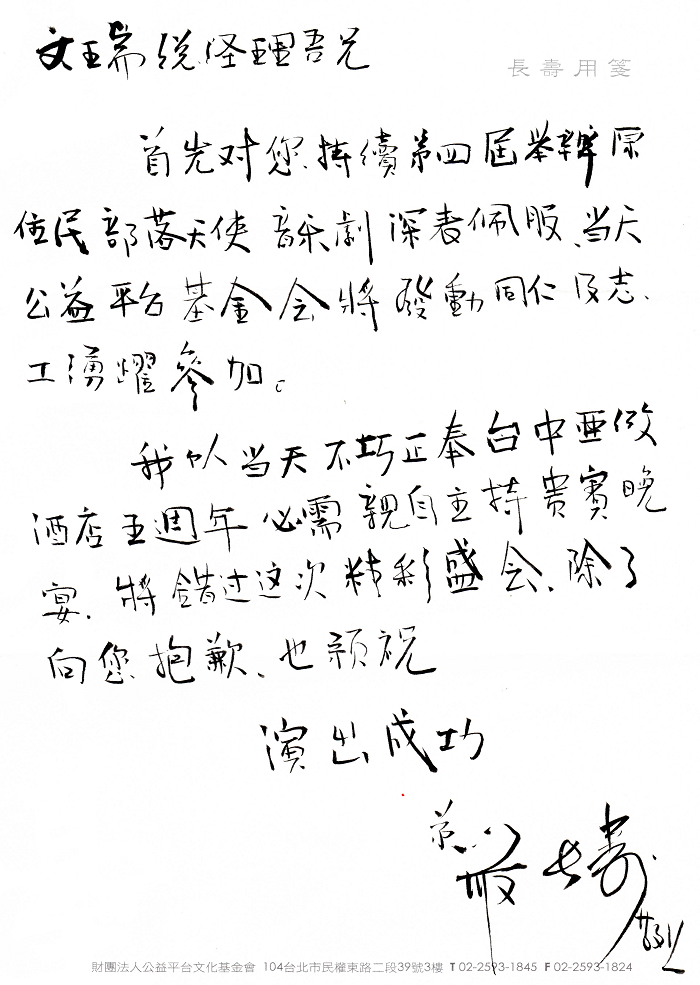 文瑞總經理吾兄
長壽用箋
首先对您持續第四屆举辦原
住民部落天使音乐劇深表佩服、当天
公益平台基金会將發動同仁及志
工湧躍參加。
我以当天不巧正奉台中亜緻
酒店五週年必需親自主持貴賓晚
宴、將錯过这次精彩盛会、除了
向您抱歉、也預祝
演出成功
弟
嚴长壽
敬上
財團法人公益平台文化基金會 104台北市民權東路二段39號3樓 T 02-2593-1845 F 02-2593-1824